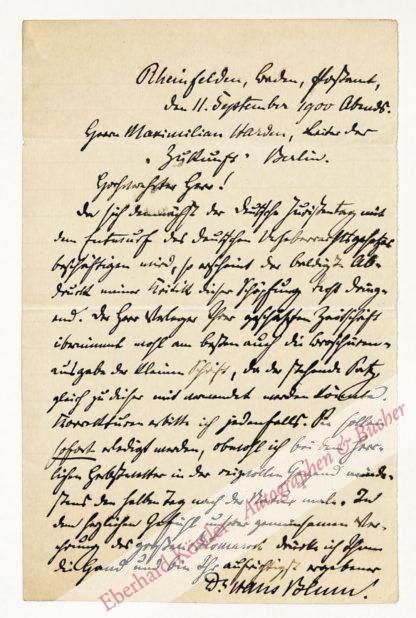 Rheinfelden, Baden, Postamt,
den 11. September 1900 Abends.
Herrn Maximilian Harden, Leiter der
"Zukunft" Berlin.
Hochgeehrter Herr!
Da sich demnächst der Deutsche Juristentag mit
dem Entwurf des Deutschen Urheberrechtsgesetzes
beschäftigen wird, so erscheint der baldigste Ab-
druck meiner Kritik dieser Schöpfung recht dring-
end. Der Herr Verleger Ihrer geschätzten Zeitschrift
übernimmt wohl am besten auch die Broschüren-
ausgabe der kleinen Schrift, da der stehende Satz
gleich zu dieser mit verwendet werden könnte.
Korrekturen erbitte ich jedenfalls. Sie sollen
sofort erledigt werden, obwohl ich bei dem herr-
lichen Herbstwetter in der reizvollen Gegend minde-
stens den halben Tag nach der Natur male. In
dem herzlichen Gefühl unserer gemeinsamen Ver-
ehrung des großen Bismarck drücke ich Ihnen
die Hand und bin Ihr aufrichtigst ergebener
Dr. Hans Blum.
Eberhard Köstler Autographen & Bücher